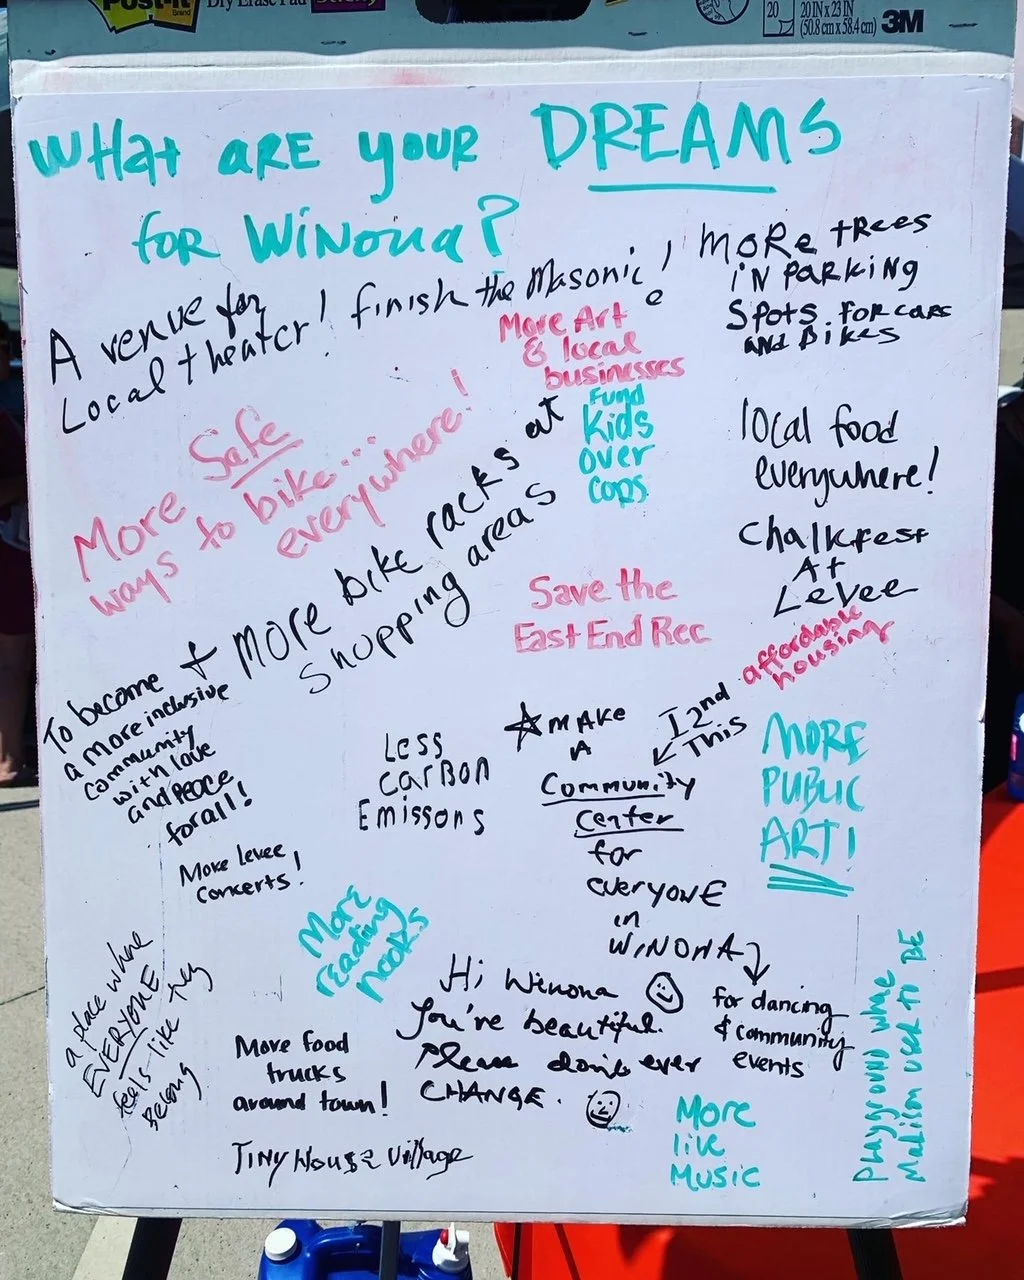 Post-it
Brand
Dry Erase Pad
20
20 IN x 23 IN
(50.8 cm x 58.4 cm)
3M
WHat aRE youR DREAMS
foR WiNoNa?
A venue for
Local theater!
finish the Masonic!
More tREES
iN PaRKiNG
Spots for cars
and Bikes
More Art
& local
businesses
More Safe
ways to bike...
everywhere!
Fund
Kids
over
cops
local food
everywhere!
+ More bike racks at
shopping areas
Chalkfest
At
Levee
Save the
East End Rec
affordable
housing
To become
a more inclusive
community
with love
and Peace
for all!
Less
Carbon
Emissons
☆ MAKE
A
Community
Center
for
everyonE
in
WINONA
I 2nd
This
MORE
PUBLIC
ART!
More Levee
Concerts!
More
reading
nooks
for dancing
& community
events
a place where
EVERYONE
feels like they
Belong
Hi Winona
You're beautiful.
Please don't ever
CHANGE.
More food
trucks
around town!
More
live
Music
Playground where
Madison used to BE
Tiny House Village